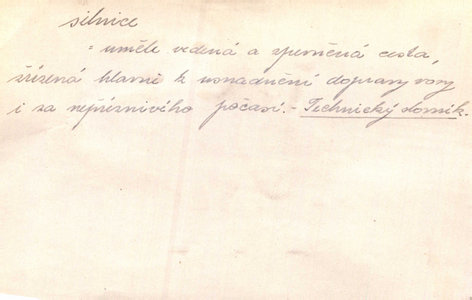 silnice
= uměle vedená a zpevněná cesta,
zřízená hlavně k usnadnění dopravy vozy
i za nepříznivého počasí. - Technický slovník.